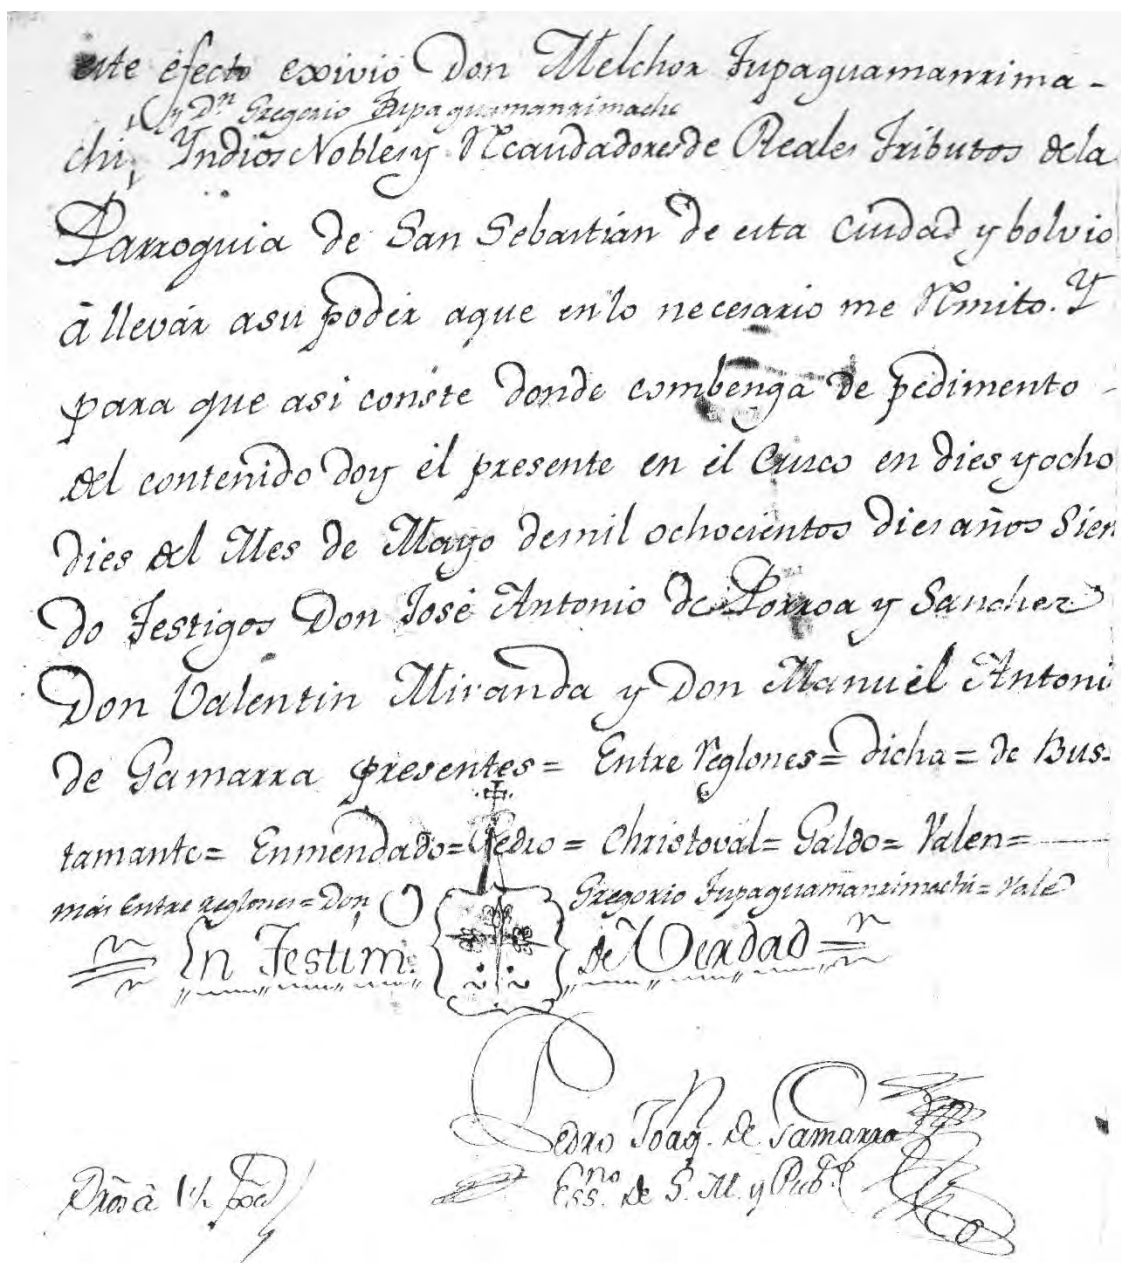 este efecto exivio Don Melchor Tupaguamanrima-
y Dn Gregorio Tupaguamanrimachi
chi, Yndios Nobles y Recaudadores de Reales Tributos de la
Parroquia de San Sebastián de esta Ciudad y bolvio
à llevár a su podér aque en lo necesario me Remito. Y
para que asi conste donde combenga de pedimento
del contenido doy el presente en el Cusco en dies y ocho
dies del Mes de Mayo de mil ochocientos dies años Sien
do Testigos Don José Antonio de Porroa y Sanchez
Don Valentin Miranda y Don Manuel Antoni
de Gamarra presentes = Entre Reglones = dicha = de Bus-
tamante = Enmendado = Pedro = Christovál = Galdo = Valen =
mas entre reglones = Don Gregorio Tupaguamanrimachi = Vale
En Testim. de Verdad =
Pedro Joaq. de Gamarra
Essno. de S. M. y Pubo.
Dros à